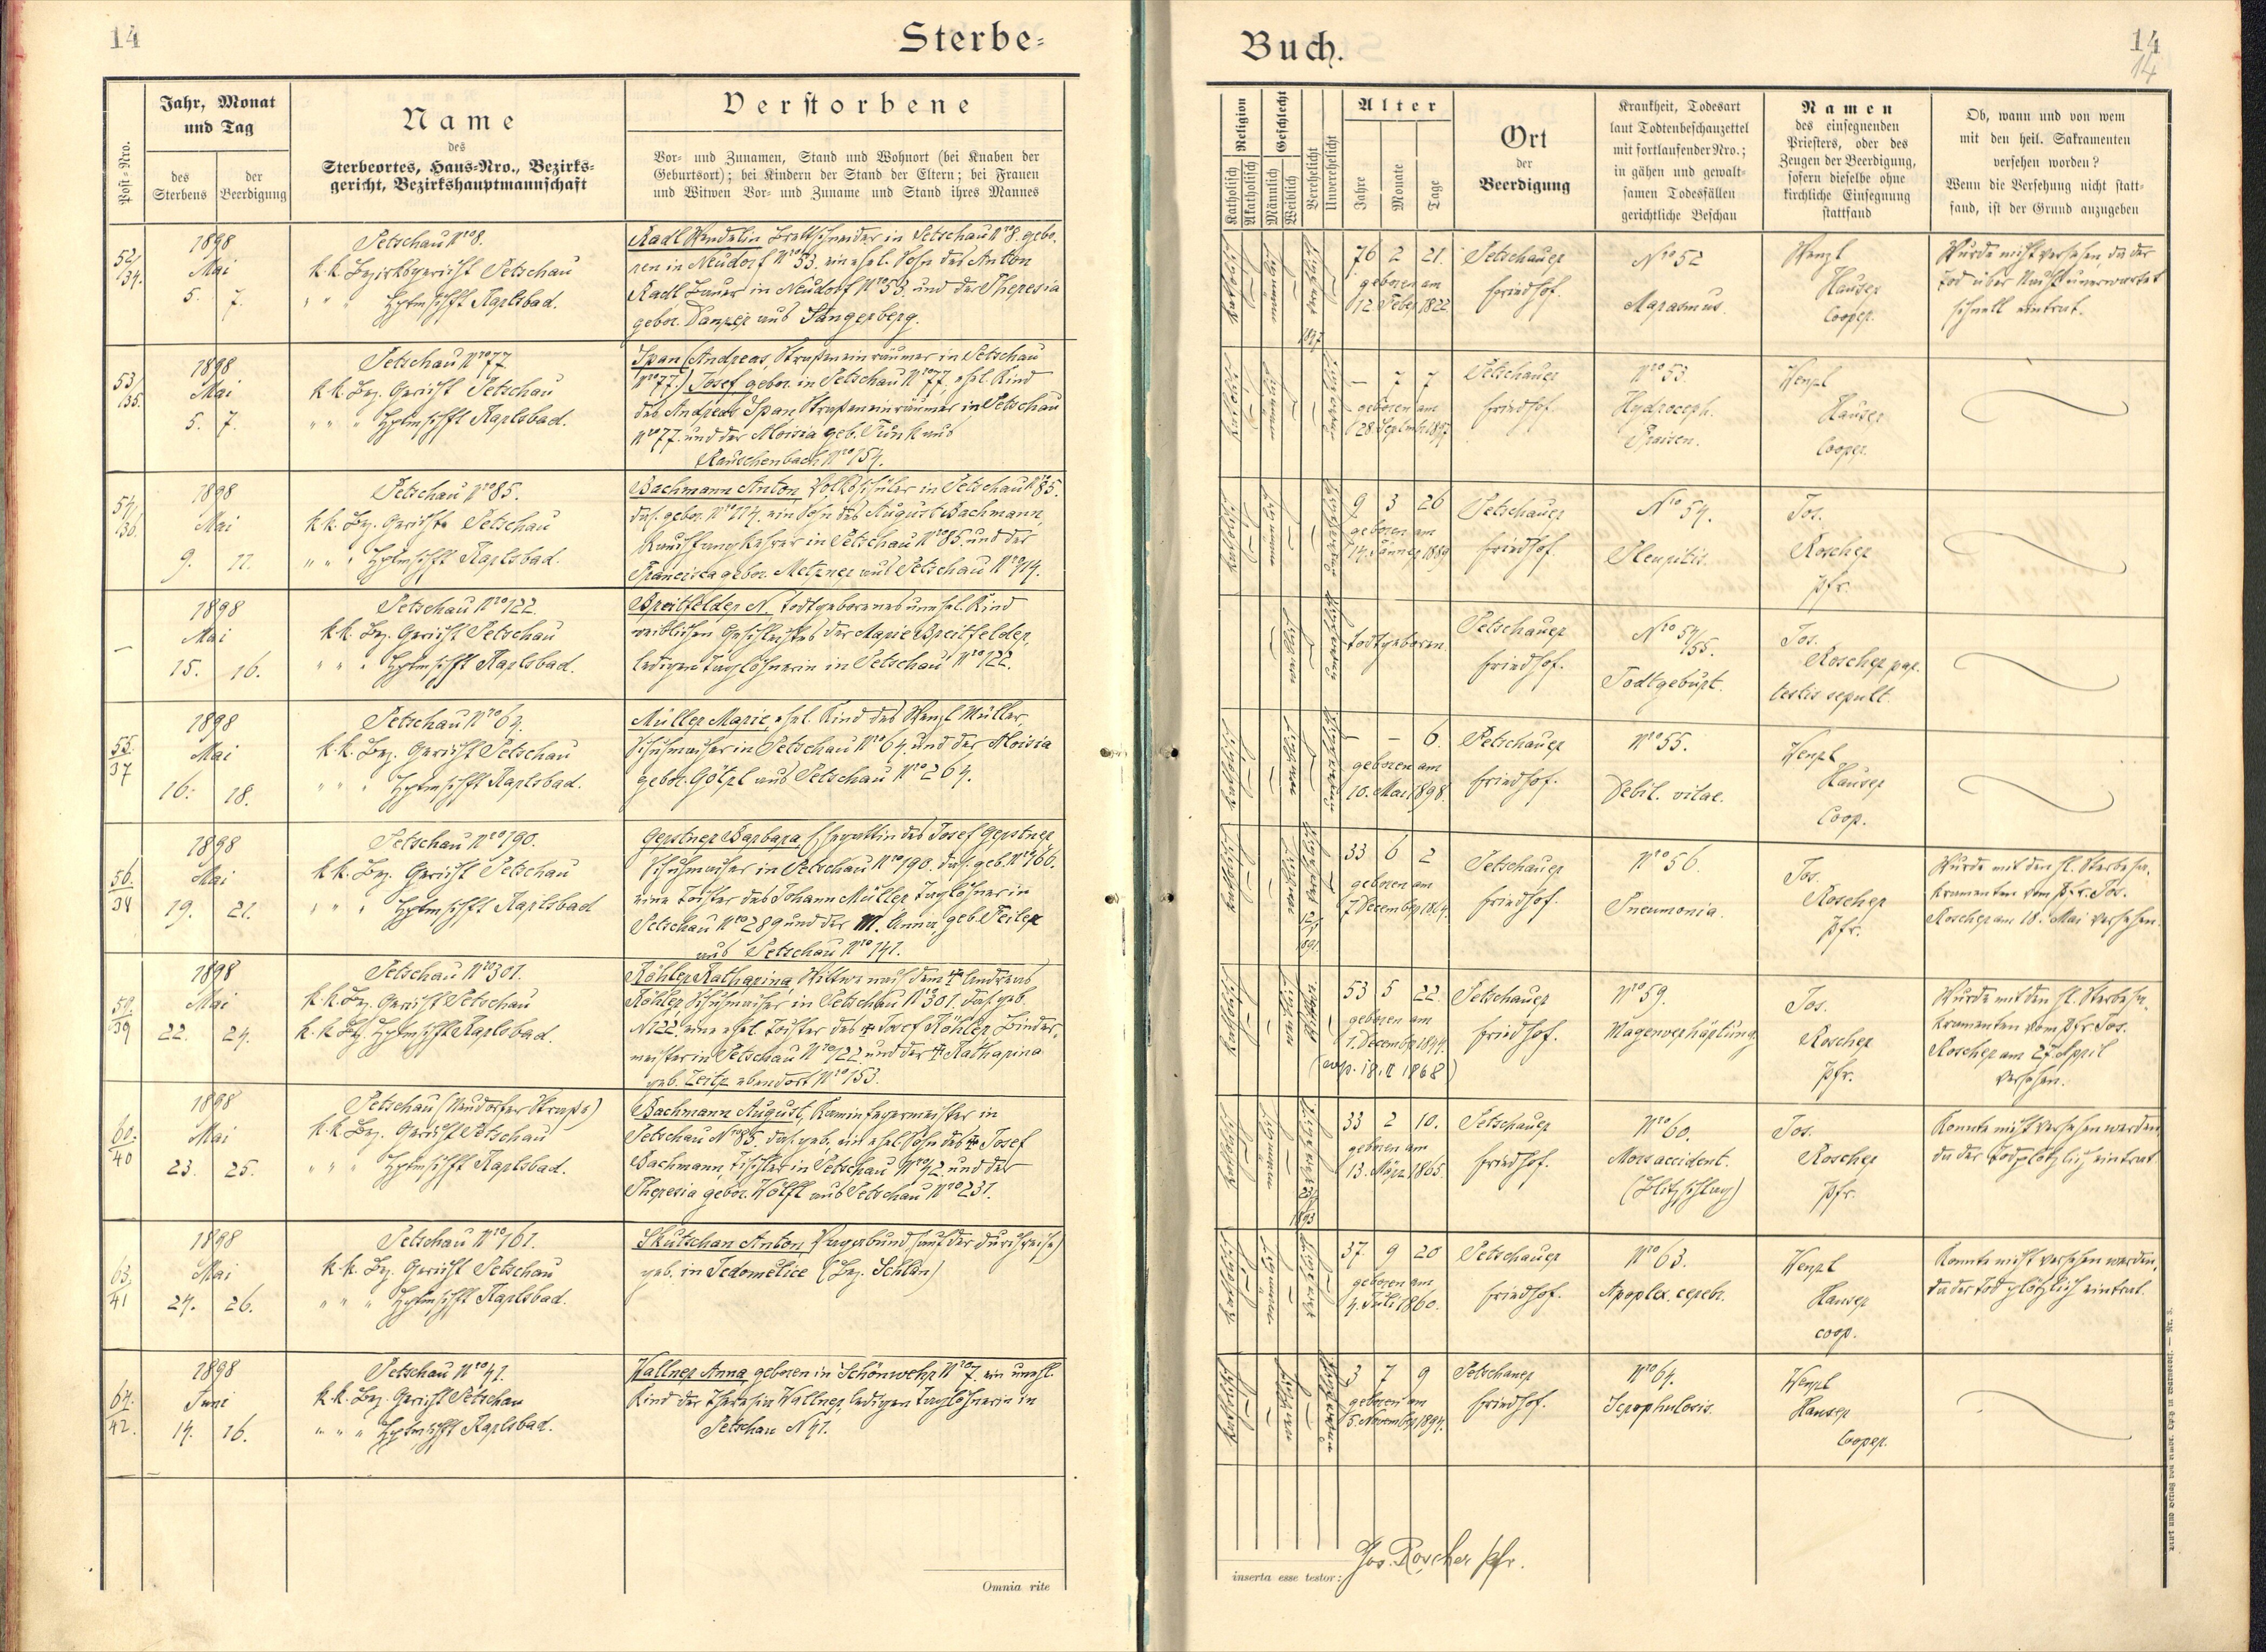 14
Sterbe=
Jahr, Monat
und Tag
Post-Nro.
des
Sterbens
der
Beerdigung
Name
des
Sterbeortes, Haus-Nro., Bezirks=
gericht, Bezirkshauptmannschaft
Verstorbene
Vor- und Zunamen, Stand und Wohnort (bei Knaben der
Geburtsort); bei Kindern der Stand der Eltern; bei Frauen
und Witwen Vor- und Zuname und Stand ihres Mannes
52/
/34.
1898
Mai
5. 7.
Petschau Nro 8.
k. k. Bezirksgericht Petschau
" " " Hptmschft Karlsbad.
Radl Wendelin Brettschneider in Petschau Nro 8. gebo,
ren in Neudorf Nro 53. ein ehel. Sohn des Anton
Radl Bauer in Neudorf Nro 53. und der Theresia
gebor. Danzer aus Sangerberg.
53/
/35.
1898
Mai
5. 7.
Petschau Nro 77
k. k. Bez. Gericht Petschau
" " " Hptmschft Karlsbad.
Span (Andreas, Straßeneinräumer in Petschau
Nro 77.) Josef gebor. in Petschau Nro 77. ehel. Kind
des Andreas Span Straßeneinräumer in Petschau
Nro 77. und der Aloisia geb. Funk aus
Rauschenbach Nro 154.
54/
/36.
1898
Mai
9. 11.
Petschau Nro 85.
k. k. Bez. Gericht Petschau
" " " Hptmschft Karlsbad.
Bachmann Anton, Volksschüler in Petschau Nro 85.
das. gebor. Nro 114. ein Sohn des August Bachmann,
Rauchfangkehrer in Petschau Nro 85. und der
Francisca gebor. Metzner aus Petschau Nro 114.
—
1898
Mai
15. 16.
Petschau Nro 122.
k. k. Bez. Gericht Petschau
" " " Hptmschft Karlsbad.
Breitfelder N. todtgeborenes unehel. Kind
weiblichen Geschlechtes der Marie Breitfelder,
ledigen Taglöhnerin in Petschau Nro 122.
55.
37
1898
Mai
16. 18.
Petschau Nro 64.
k. k. Bez. Gericht Petschau
" " " Hptmschft Karlsbad.
Müller Marie, ehel. Kind des Wenzl Müller,
Schuhmacher in Petschau Nro 64. und der Aloisia
gebor. Götzl aus Petschau Nro 264.
56.
38
1898
Mai
19. 21.
Petschau Nro 190.
k. k. Bez. Gericht Petschau
" " " Hptmschft Karlsbad
Gerstner Barbara, Ehegattin des Josef Gerstner,
Schuhmacher in Petschau Nro 190. das. geb. Nro 160.
eine Tochter des Johann Müller Taglöhner in
Petschau Nro 289 und der M. Anna, geb. Feiler
aus Petschau Nro 141.
59.
39
1898
Mai
22. 24.
Petschau Nro 301.
k. k. Bez. Gericht Petschau
k. k. Bez. Hptmschft Karlsbad.
Köhler Katharina, Wittwe nach dem † Andreas
Köhler Schuhmacher in Petschau Nro 301. das. geb.
N 122 eine ehel. Tochter des † Josef Köhler Binder,
meister in Petschau Nro 122. und der † Katharina
geb. Zeitz ebendort Nro 153.
60.
40
1898
Mai
23. 25.
Petschau (Neudorfer Straße)
k. k. Bez. Gericht Petschau
" " " Hptmschft Karlsbad.
Bachmann August, Kaminfegermeister in
Petschau Nro 85. das. geb. ein ehel. Sohn des † Josef
Bachmann, Tischler in Petschau Nro 42 und der
Theresia gebor. Wölfl aus Petschau Nro 231.
63.
41
1898
Mai
24. 26.
Petschau Nro 161.
k. k. Bez. Gericht Petschau
" " " Hptmschft Karlsbad.
Skutschan Anton, Vagabund (auf der Durchreise)
geb. in Jedomělice (Bez. Schlan)
64.
42.
1898
Juni
14. 16.
Petschau Nro 41.
k. k. Bez. Gericht Petschau
" " " Hptmschft Karlsbad.
Wallner Anna, geboren in Schönwehr Nro 7. ein unehl.
Kind der Theresia Wallner, ledigen Taglöhnerin in
Petschau N 41.
Omnia rite
Buch.
14
14
Religion
Katholisch
Akatholisch
Geschlecht
Männlich
Weiblich
Verehelicht
Unverehelicht
Alter
Jahre
Monate
Tage
Ort
der
Beerdigung
Krankheit, Todesart
laut Todtenbeschauzettel
mit fortlaufender Nro.;
in gähen und gewalt=
samen Todesfällen
gerichtliche Beschau
Namen
des einsegnenden
Priesters, oder des
Zeugen der Beerdigung,
sofern dieselbe ohne
kirchliche Einsegnung
stattfand
Ob, wann und von wem
mit den heil. Sakramenten
versehen worden?
Wenn die Versehung nicht statt=
fand, ist der Grund anzugeben
76 2 21.
geboren am
12. Feber 1822.
Petschauer
Friedhof.
Nro 52
Marasmus.
Wenzl
Hauser
Cooper.
Wurde nicht versehen, da der
Tod über Nacht unerwartet
schnell eintrat.
— 7 7
geboren am
28. September 1897
Petschauer
Friedhof.
Nro 53.
Hydroceph.
Fraisen.
Wenzl
Hauser
Cooper.
9 3 26
geboren am
14. Jänner 1889
Petschauer
Friedhof.
Nro 54.
Pleuritis.
Jos.
Roscher
Pfr.
todtgeboren.
Petschauer
Friedhof.
Nro 54/55.
Todtgeburt.
Jos.
Roscher par.
testis sepult.
— — 6.
geboren am
10. Mai 1898.
Petschauer
Friedhof.
Nro 55.
Debil. vitae.
Wenzl
Hauser
Coop.
33 6 2
geboren am
7. December 1864.
Petschauer
Friedhof.
Nro 56.
Pneumonia.
Jos.
Roscher
Pfr.
Wurde mit den hl. Sterbesa,
kramenten vom Pfr. Jos.
Roscher am 18. Mai versehen.
53 5 22.
geboren am
1. December 1844.
Petschauer
Friedhof.
Nro 59.
Magenverhärtung.
Jos.
Roscher
Pfr.
Wurde mit den hl. Sterbesa,
kramenten vom Pfr. Jos.
Roscher am 27. April
versehen.
33 2 10.
geboren am
13. März 1865.
Petschauer
Friedhof.
Nro 60.
Mors accident.
(Blitzschlag)
Jos.
Roscher
Pfr.
Konnte nicht versehen werden,
da der Tod plötzlich eintrat.
37. 9 20
geboren am
4. Juli 1860.
Petschauer
Friedhof.
Nro 63.
Apoplex. cerebr.
Wenzl
Hauser
coop.
Konnte nicht versehen werden,
da der Tod plötzlich eintrat.
3 7 9
geboren am
5. November 1894.
Petschauer
Friedhof.
Nro 64.
Scrophulosis.
Wenzl
Hauser
Cooper.
inserta esse testor:
Jos. Roscher Pfr.